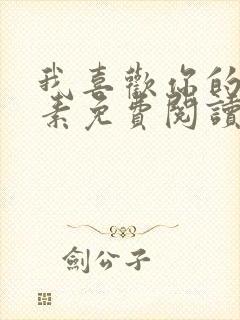 我喜歡你的
素免費閱讀
劍公子